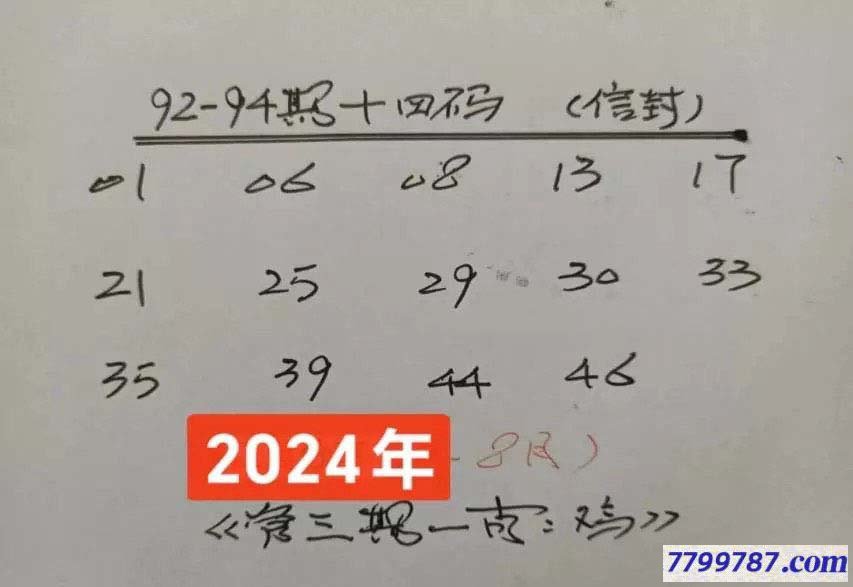 92-94期十四码 (信封)
01 06 08 13 17
21 25 29 30 33
35 39 44 46
2024年 8月)
《管三期一肖:鸡》
7799787.com